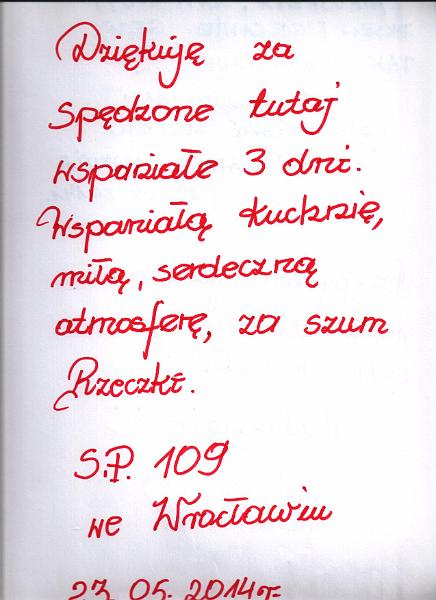 Dziękuję za
spędzone tutaj
wspaniałe 3 dni.
Wspaniałą kuchnię,
miłą, serdeczną
atmosferę, za szum
Rzeczki.
S.P. 109
we Wrocławiu
27.05.2014r.